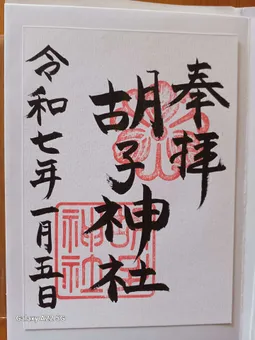 奉拝
胡子神社
令和七年一月五日
胡子
神社
Galaxy A23 5G